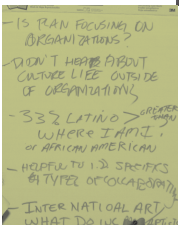 - IS PLAN FOCUSING ON
ORGANIZATIONS?
- DIDN'T HEAR ABOUT
CULTURE LIFE OUTSIDE
OF ORGANIZATIONS
- 33% LATINO > GREATER THAN
WHERE I AM I.
OF AFRICAN AMERICAN
- HELPFUL TO I.D SPECIFICS
& TYPES OF COLLABORATION
- INTERNATIONAL ART
WHAT DO WE